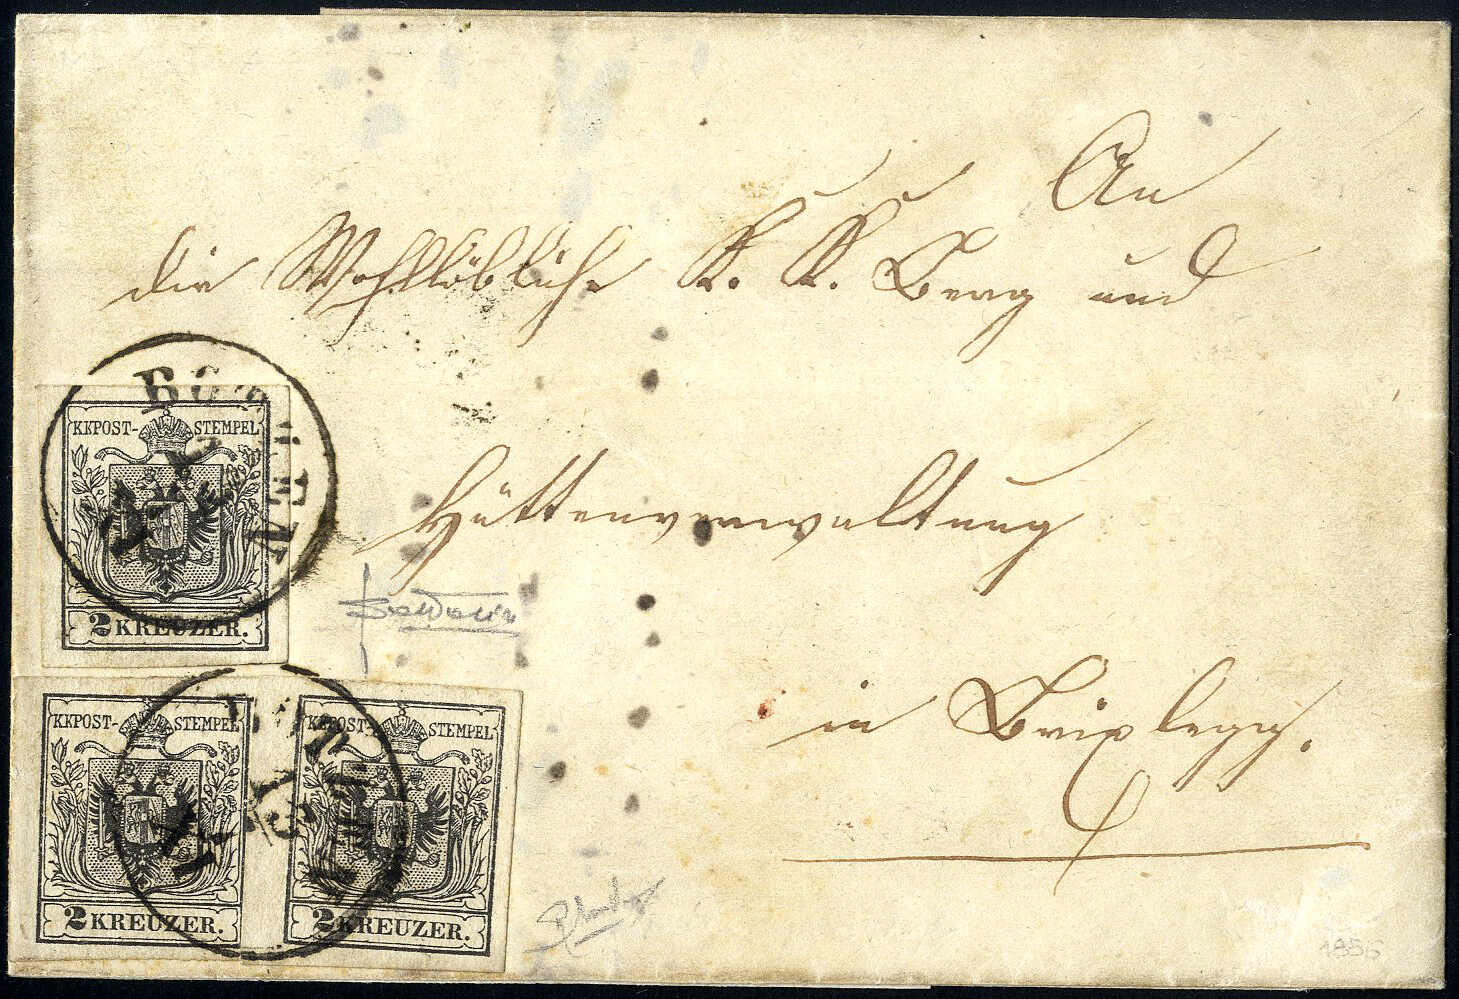 An
die Wohllöbliche K. K. Berg und
Hüttenverwaltung
in Brixlegg.
BOTZEN
KKPOST-STEMPEL
2 KREUZER.
KKPOST-STEMPEL
2 KREUZER.
KKPOST-STEMPEL
2 KREUZER.
1856